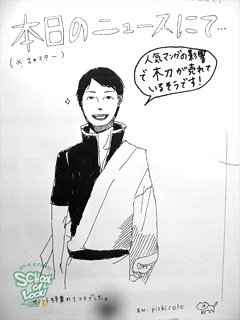 本日のニュースにて…
(× キャスター)
人気マンガの影響
で木刀が売れて
いるそうです!
SCHOOL
OF LOCK!
特集の1コマでした。
RN. pichicolo